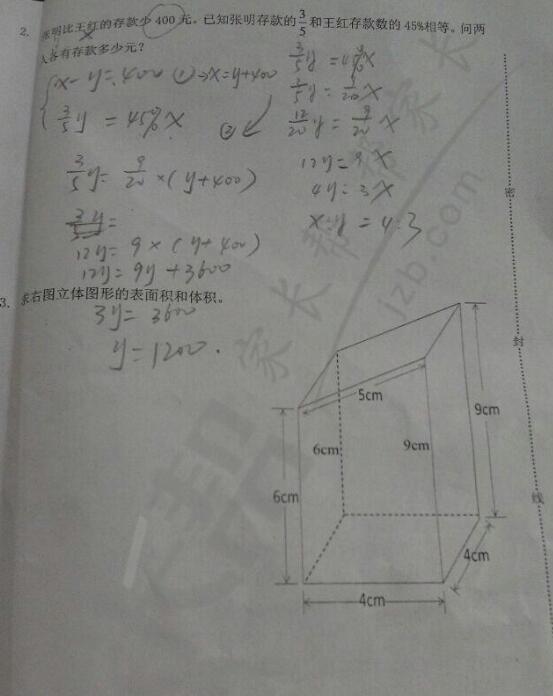 2. 张明比王红的存款少400元。已知张明存款的3/5和王红存款数的45%相等。问两
人各有存款多少元？
x-y=400 ① ⇒x=y+400
3/5y=45%x ②
3/5y=9/20×(y+400)
3/5y=
12y=9×(y+400)
12y=9y+3600
3/5y=45%x
3/5y=9/20x
12/20y=9/20x
12y=9x
4y=3x
x:y=4:3
3. 求右图立体图形的表面积和体积。
3y=3600
y=1200.
5cm
6cm
9cm
9cm
6cm
4cm
4cm
密
封
线
家长帮
jzb.com